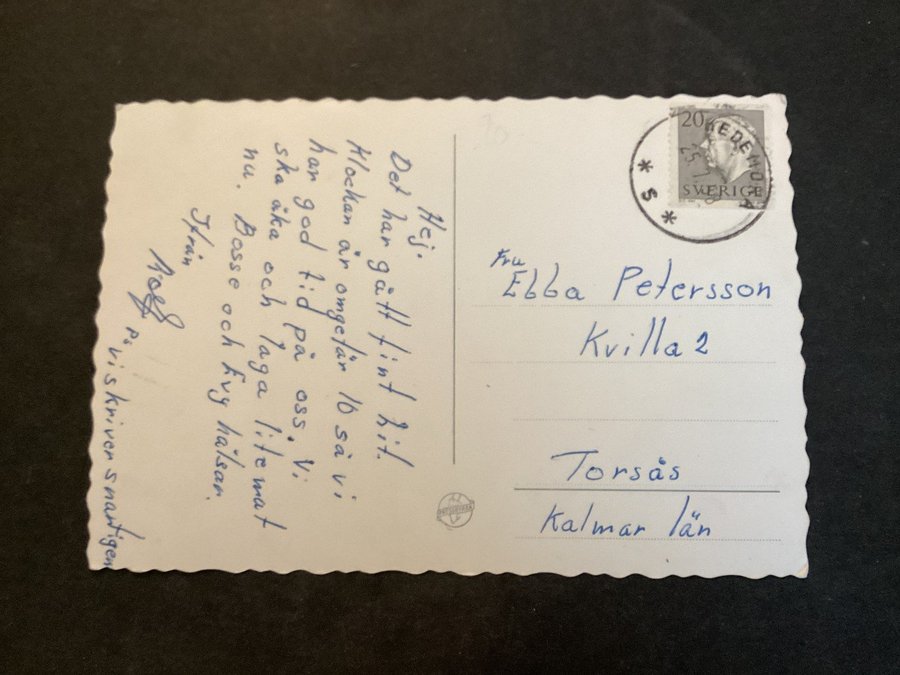 Hej.
Det har gått fint hit.
Klockan är omgefär 16 så vi
har god tid på oss. Vi
ska åka och laga lite mat
nu. Bosse och Evy hälsar.
Ifrån
Rolf
vi skriver snartigen
20
HEDEMORA
SVERIGE
* 5 *
Fru
Ebba Petersson
Kvilla 2
Torsås
Kalmar län